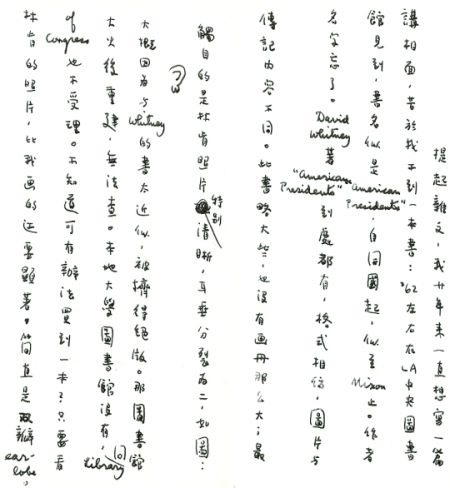 提起雜文，我廿年來一直想寫一篇
講相面，苦於找不到一本書：'62左右在LA中央圖書
館見到，書名似是"American Presidents"，自開國起，似至Nixon止。作者
名字忘了。David Whitney著"American Presidents"到處都有，格式相似，圖片与
傳記內容不同。此書略大些，也沒有画冊那么大；最
觸目的是林肯照片特别清晰，耳垂分裂為二，如圖：
大概因為与Whitney的書太近似，被擠得絕版。那圖書館
大火後重建，無法查。本地大學圖書館沒有，問Library
of Congress也不受理。不知道可有辦法買到一本？只要看
林肯的照片，比我画的还要顯著。简直是双瓣ear-lobe。